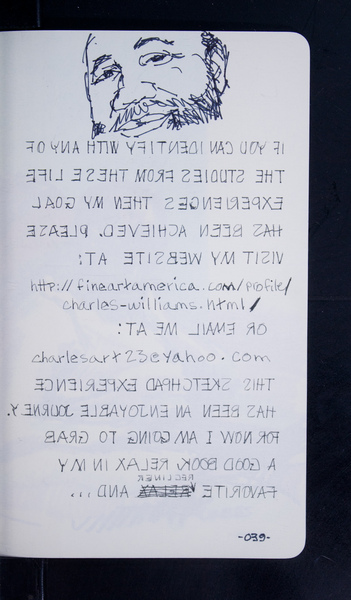 IF YOU CAN IDENTIFY WITH ANY OF
THE STUDIES FROM THESE LIFE
EXPERIENCES THEN MY GOAL
HAS BEEN ACHIEVED. PLEASE
VISIT MY WEBSITE AT:
http://fineartamerica.com/profile/
charles-williams.html/
OR EMAIL ME AT:
charlesart23@yahoo.com
THIS SKETCHPAD EXPERIENCE
HAS BEEN AN ENJOYABLE JOURNEY.
FOR NOW I AM GOING TO GRAB
A GOOD BOOK, RELAX IN MY
RECLINER
FAVORITE RELAX AND ...
-039-